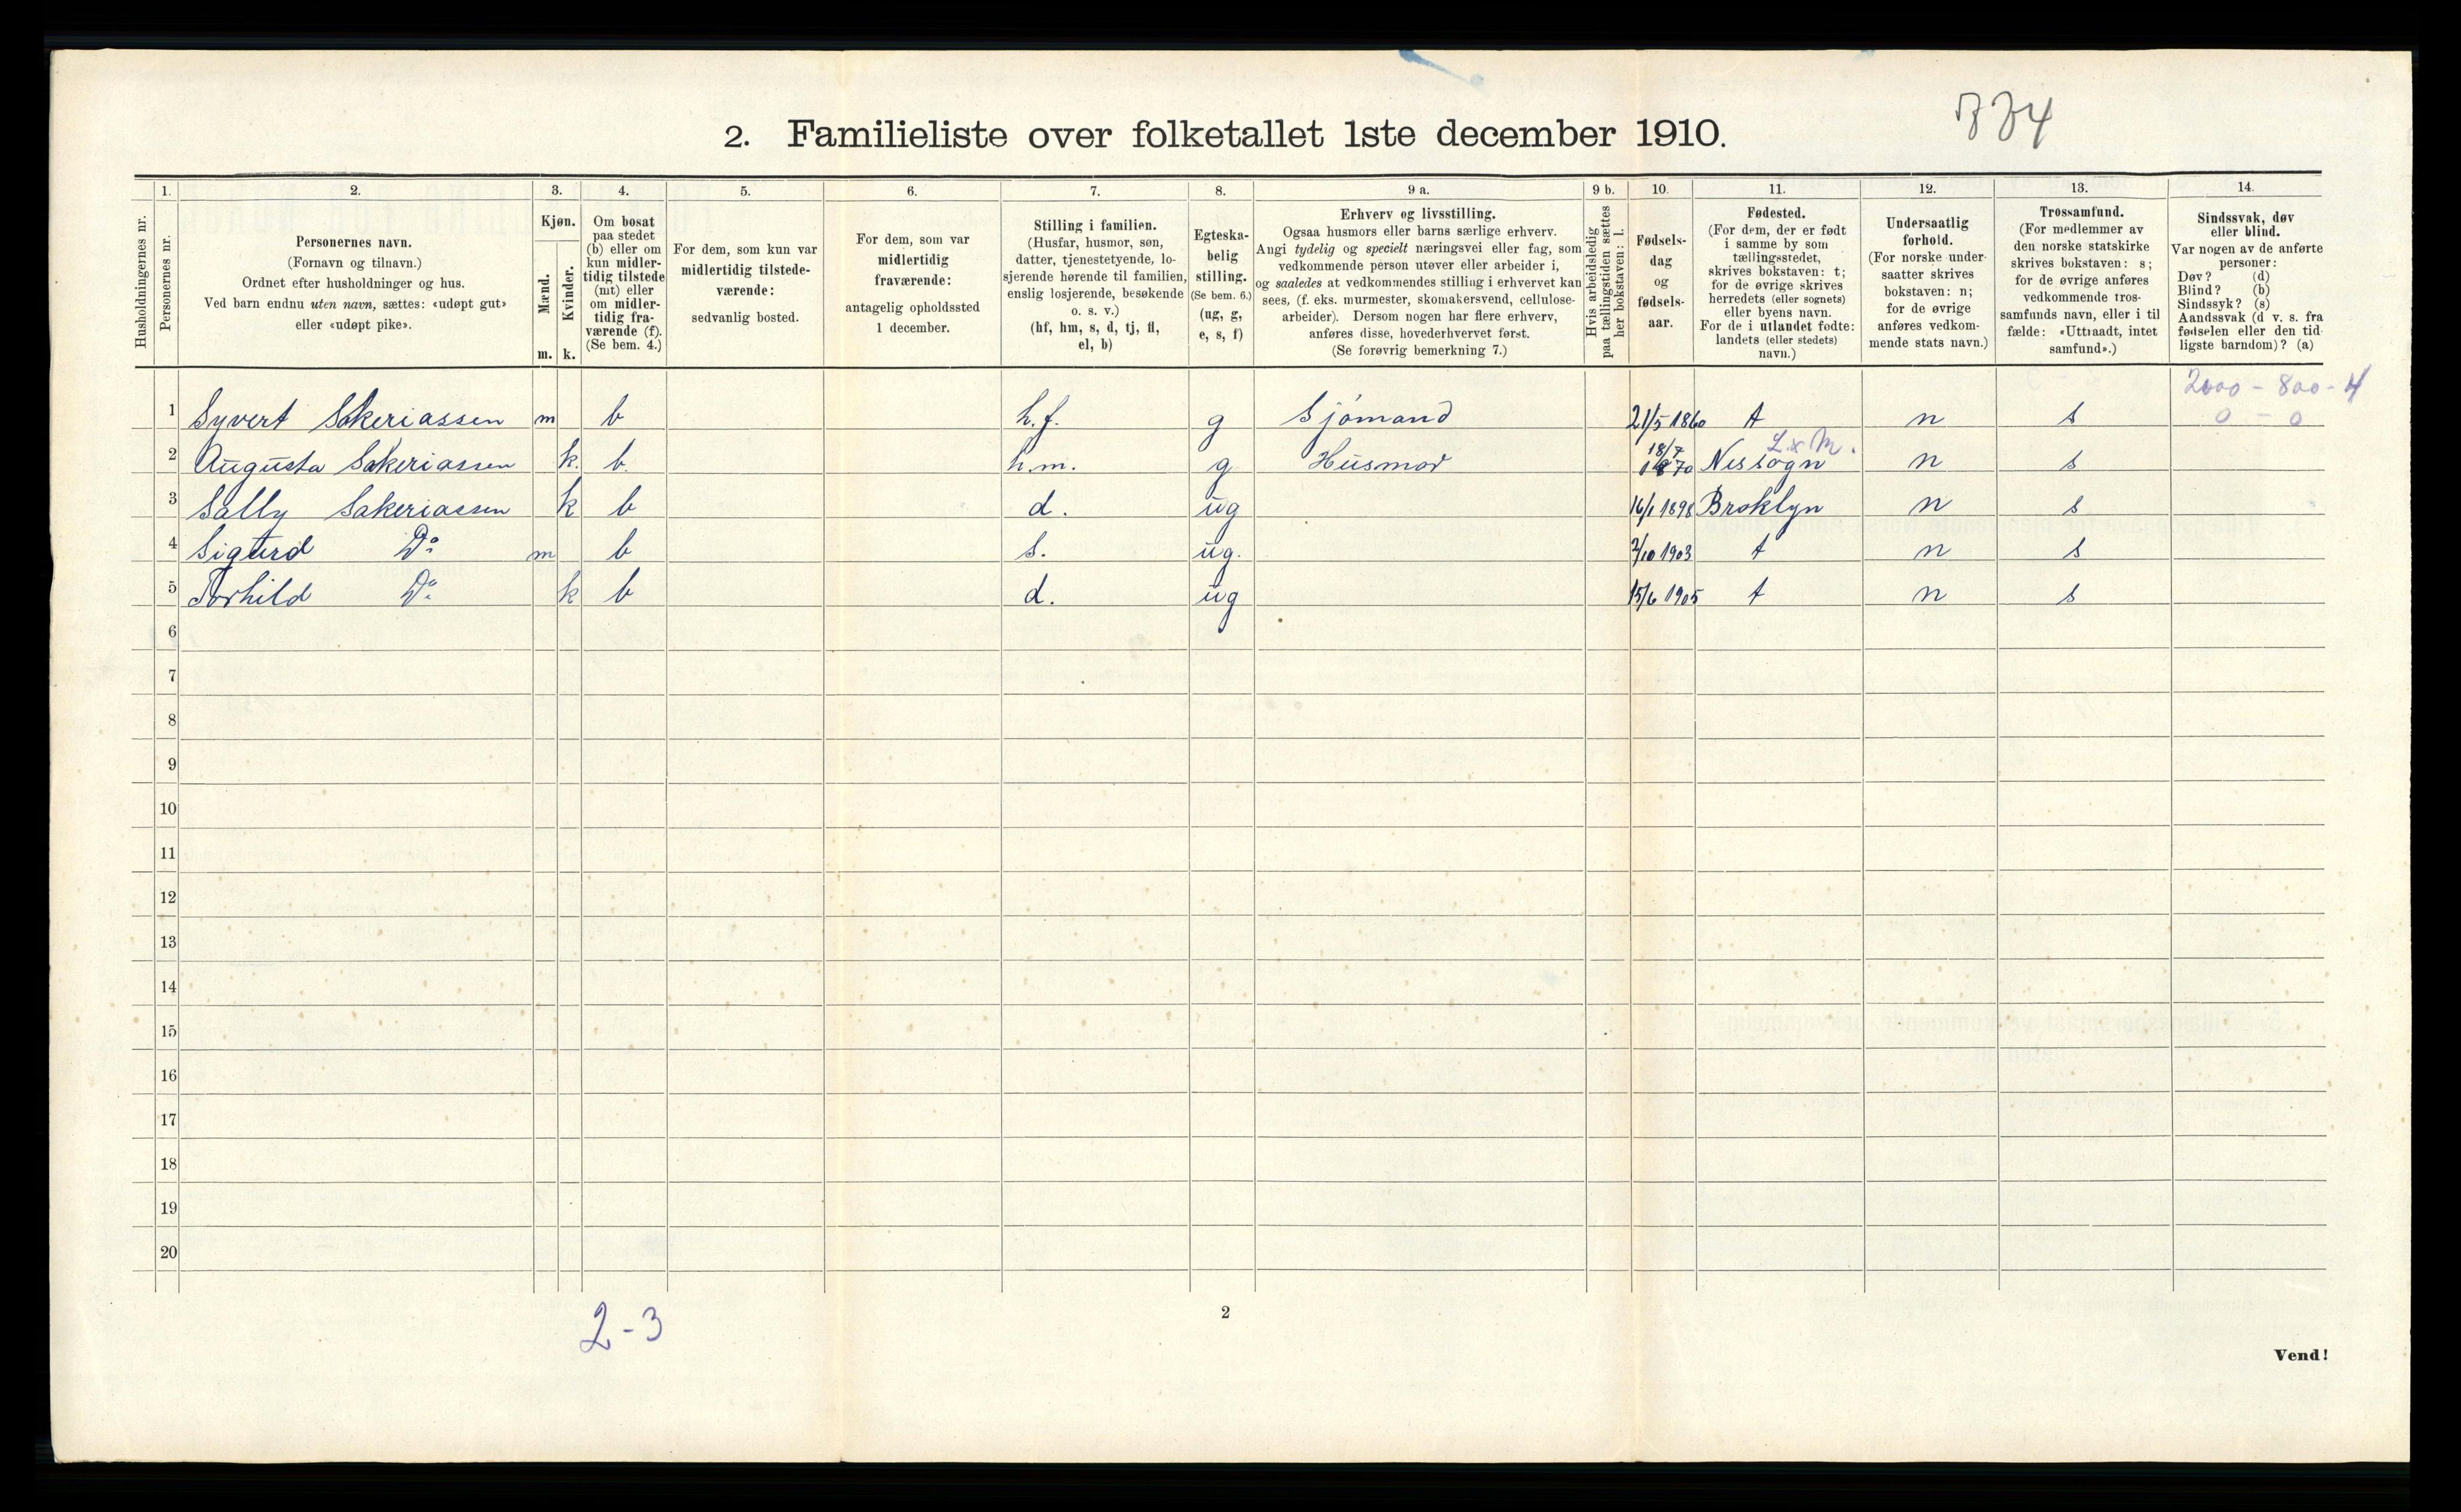 2. Familieliste over folketallet 1ste december 1910.
1. 2. 3. 4. 5. 6. 7. 8. 9 a. 9 b. 10. 11. 12. 13. 14.
Husholdningernes nr.
Personernes nr.
Personernes navn.
(Fornavn og tilnavn.)
Ordnet efter husholdninger og hus.
Ved barn endnu uten navn, sættes: «udøpt gut»
eller «udøpt pike».
Kjøn.
Mænd.
Kvinder.
m. k.
Om bosat
paa stedet
(b) eller om
kun midler-
tidig tilstede
(mt) eller
om midler-
tidig fra-
værende (f).
(Se bem. 4.)
For dem, som kun var
midlertidig tilstede-
værende:
sedvanlig bosted.
For dem, som var
midlertidig
fraværende:
antagelig opholdssted
1 december.
Stilling i familien.
(Husfar, husmor, søn,
datter, tjenestetyende, lo-
sjerende hørende til familien,
enslig losjerende, besøkende
o. s. v.)
(hf, hm, s, d, tj, fl,
el, b)
Egteska-
belig
stilling.
(Se bem. 6.)
(ug, g,
e, s, f)
Erhverv og livsstilling.
Ogsaa husmors eller barns særlige erhverv.
Angi tydelig og specielt næringsvei eller fag, som
vedkommende person utøver eller arbeider i,
og saaledes at vedkommendes stilling i erhvervet kan
sees, (f. eks. murmester, skomakersvend, cellulose-
arbeider). Dersom nogen har flere erhverv,
anføres disse, hovederhvervet først.
(Se forøvrig bemerkning 7.)
Hvis arbeidsledig
paa tællingstiden sættes
her bokstaven: l.
Fødsels-
dag
og
fødsels-
aar.
Fødested.
(For dem, der er født
i samme by som
tællingsstedet,
skrives bokstaven: t;
for de øvrige skrives
herredets (eller sognets)
eller byens navn.
For de i utlandet fødte:
landets (eller stedets)
navn.)
Undersaatlig
forhold.
(For norske under-
saatter skrives
bokstaven: n;
for de øvrige
anføres vedkom-
mende stats navn.)
Trossamfund.
(For medlemmer av
den norske statskirke
skrives bokstaven: s;
for de øvrige anføres
vedkommende tros-
samfunds navn, eller i til
fælde: «Uttraadt, intet
samfund».)
Sindssvak, døv
eller blind.
Var nogen av de anførte
personer:
Døv? (d)
Blind? (b)
Sindssyk? (s)
Aandssvak (d v. s. fra
fødselen eller den tid
ligste barndom)? (a)
2000 - 800 - 4
0 - 0
1 Syvert Sakeriassen m b h.f. g Sjömand 21/5 1860 t n s
L & M.
2 Augusta Sakeriassen k. b. h.m. g Husmor 18/7 1870 Nessogn n s
3 Sally Sakeriassen k b d. ug 16/1 1898 Broklyn n s
4 Sigurd Do m b s. ug. 2/10 1903 t n s
5 Torhild Do k b d. ug 15/6 1905 t n s
6
7
8
9
10
11
12
13
14
15
16
17
18
19
20
2-3
2
Vend!